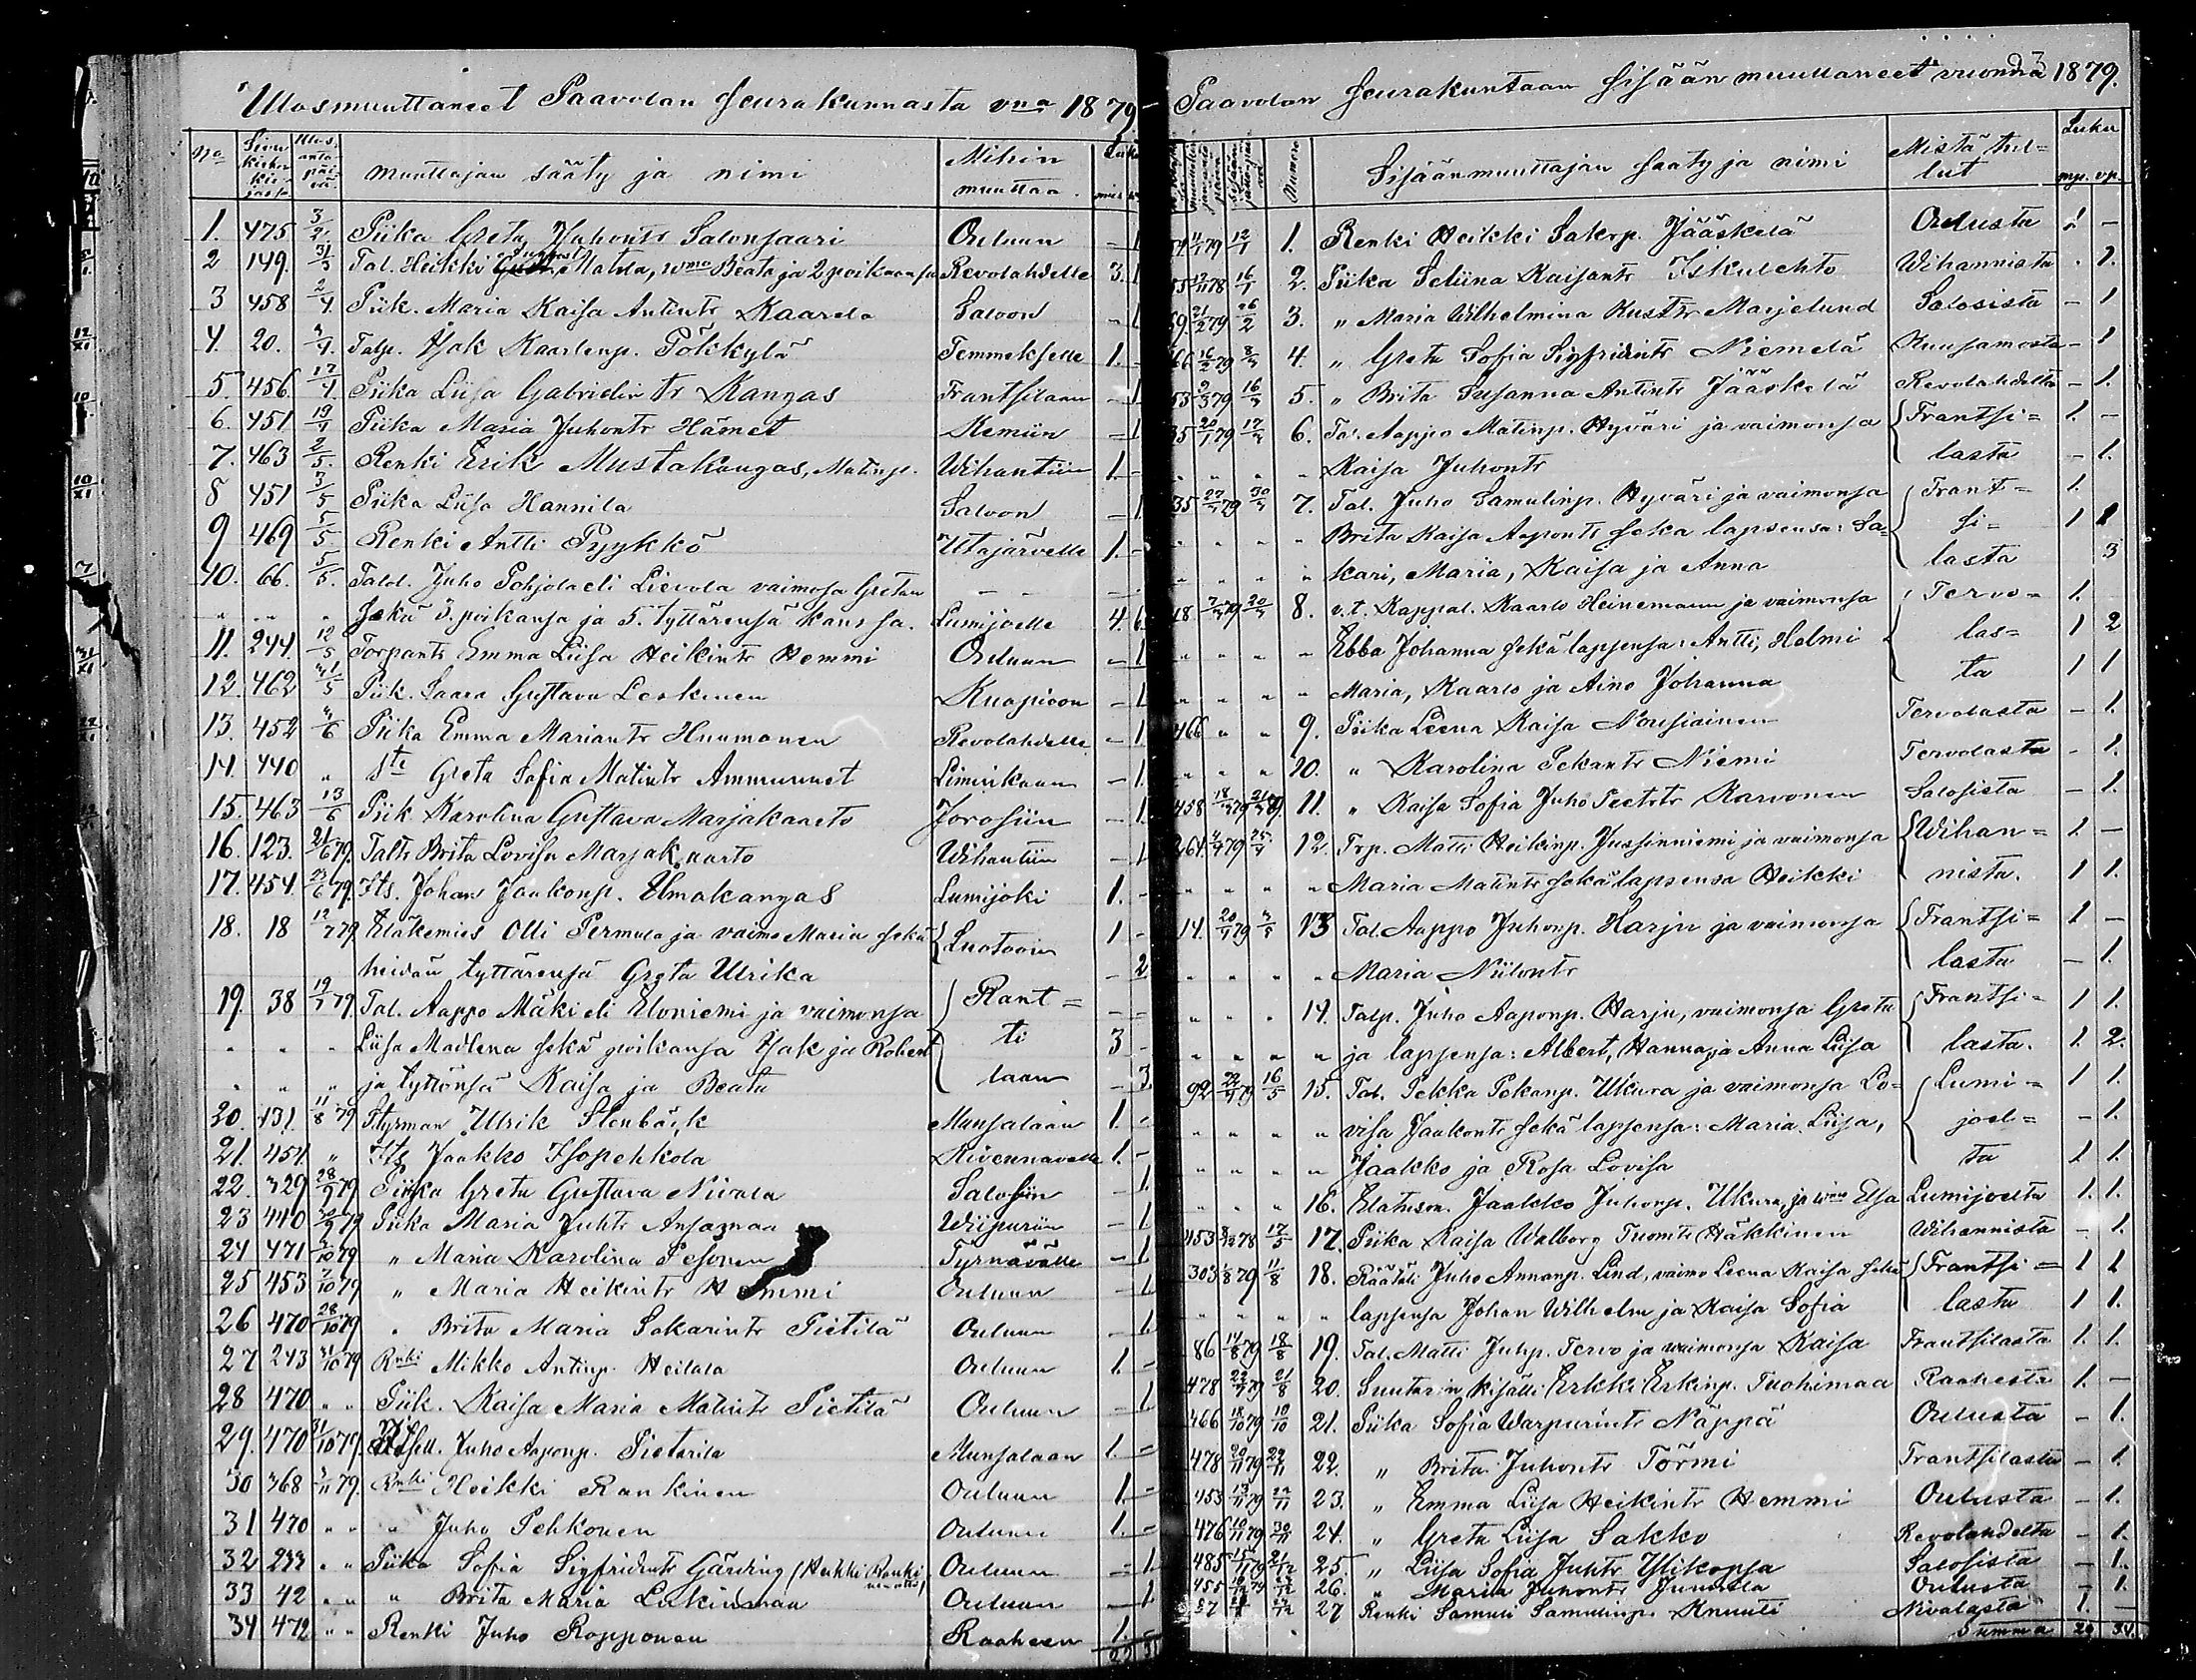 Ulosmuuttaneet Paavolan seurakunnasta vna 1879
No Sivu kirkon kirjassa Ulosantopäivä muuttajan sääty ja nimi Mihin muuttaa Luku
1. 475 3/2 Piika Greta Juhontr Salonsaari Ouluun - 1
2 149. 31/3 Tal. Heikki Matila, wmo Beata ja 2 poikaansa Revolahdelle 3. 1
3 458 2/4 Piik. Maria Kaisa Antintr Kaarela Saloon - 1
4. 20. 3/4 Talp. Isak Kaarlenp. Pökkylä Temmekselle 1. -
5. 456 17/4 Piika Liisa Gabrielintr Kangas Frantsilaan - 1
6. 451 19/4 Piika Maria Juhontr Hämet Kemiin - 1
7. 463 2/5. Renki Erik Mustakangas, Matinp. Wihantiin 1. -
8 451 3/5 Piika Liisa Hannila Saloon - 1.
9 469 5/5 Renki Antti Pyykkö Utajärvelle 1. -
10. 66. 5/5. Talol. Juho Pohjola eli Lievola vaimosa Gretan
" " " sekä 3. poikansa ja 5. tyttärensä kanssa. Lumijoelle 4. 6.
11. 244. 12/5 Torpantr Emma Liisa Heikintr Hemmi Ouluun - 1
12. 462 31/5 Piik. Saara Gustava Leskinen Kuopioon - 1
13. 452 3/6 Piika Emma Mariantr Huumonen Revolahdelle - 1.
14. 440 " Greta Sofia Matintr Ammunnet Liminkaan - 1.
15. 463 13/6 Piik Karolina Gustava Marjakaarto Joroisiin - 1.
16. 123. 21/6 79. Taltr Brita Lovisa Marjakaarto Wihantiin - 1
17. 454. 23/6 79. Its. Johan Jaakonp. Elmakangas Lumijoki 1. -
18. 18 12/7 79 Eläkemies Olli Permula ja vaimo Maria sekä Luotooin 1 -
heidän tyttärensä Greta Ulrika - 2
19. 38 19/7 79. Tal. Aappo Mäki eli Eloniemi ja vaimonsa Rant=
" " " Liisa Madlena sekä poikansa Isak ja Robert ti 3 -
" " " ja tyttönsä Kaisa ja Beata laan - 3
20. 131. 11/8 79 Styrman Ulrik Stenbäck Munsalaan 1. -
21. 454 " Its Jaakko Isopehkola Kivennavalle 1. -
22. 329 28/9 79 Piika Greta Gustava Nivala Salosiin - 1.
23 440 30/9 79 Piika Maria Juhtr Ansamaa Wiipuriin - 1
24 471 3/10 79 " Maria Karolina Pesonen Tyrnävälle - 1
25 453 7/10 79 " Maria Heikintr Hemmi Ouluun - 1.
26 470 28/10 79 " Brita Maria Sakarintr Pietilä Ouluun - 1.
27 243 31/10 79 Rnki Mikko Antinp. Heilala Ouluun 1. -
28 470 " " Piik. Kaisa Maria Matintr Pietilä Ouluun - 1
29. 470 31/10 79. Itsell. Juho Aaponp. Pietarila Munsalaan 1. -
30 368 3/11 79. Rnki Heikki Rankinen Ouluun 1. -
31 470 " " " Juho Pehkonen Ouluun 1. -
32 233 " " Piika Sofia Sigfridintr Gärding Ouluun - 1
33 42 " " " Brita Maria Lukinmaa Ouluun - 1
34 472 " " Renki Juho Ropponen Raaheen 1. -
22
Paavolan seurakuntaan sisään muuttaneet vuonna 1879.
Numero Sisäänmuuttajan sääty ja nimi Mistä tullut Luku mp. vp.
12/1 1. Renki Heikki Sakrp. Jääskelä Oulusta 1 -
16/1 2. Piika Seliina Kaisantr Iskulehto Wihannista - 1.
26/2 3. " Maria Wilhelmina Kusttr Marjelund Salosista - 1
4. " Greta Sofia Sigfridintr Niemelä Kuusamosta - 1
5. " Brita Susanna Antintr Jääskelä Revolahdelta - 1.
6. Tal. Aappo Matinp. Hyväri ja vaimonsa Frantsi= 1. -
Kaisa Juhontr lasta - 1.
7. Tal. Juho Samulinp. Hyväri ja vaimonsa Frant= 1.
Brita Kaisa Aapontr sekä lapsensa: Sa= si= 1 1
kari, Maria, Kaisa ja Anna lasta 3
8. v.t. Kappal. Kaarlo Heinemann ja vaimonsa Tervo= 1.
Ebba Johanna sekä lapsensa: Antti, Helmi las= 1 2
Maria, Kaarlo ja Aino Johanna ta 1 1
466 " " 9. Piika Leena Kaisa Nousiainen Tervolasta - 1.
" " " 10. " Karolina Pekantr Niemi Tervolasta - 1.
458 11. " Kaisa Sofia Juho Peettr Karvonen Salosista - 1.
264. 12. Trp. Matti Heikinp. Jussinniemi ja vaimonsa Wihan= 1. -
Maria Matintr sekä lapsensa Heikki nista. 1 1.
14. 13 Tal. Aappo Juhonp. Harju ja vaimonsa Frantsi= 1 -
Maria Niilontr lasta - 1.
14. Talp. Juho Aaponp. Harju, vaimonsa Greta Frantsi= 1 1.
ja lapsensa: Albert, Hanna ja Anna Liisa lasta. 1. 2.
92 16/5 15. Tal. Pekka Pekanp. Ukura ja vaimonsa Lo= Lumi= 1 1.
visa Jaakontr sekä lapsensa: Maria Liisa, joel= - 1.
Jaakko ja Rosa Lovisa ta 1 1.
16. Elatusm. Jaakko Juhonp. Ukura, ja wmo Elsa Lumijoelta 1. 1.
453 17/5 17. Piika Kaisa Walborg Tuomtr Häkkinen Wihannista - 1.
303 1/8 79 11/8 18. Räätäli Juho Annanp. Lind, vaimo Leena Kaisa sekä Frantsi= 1 1
lapsensa Johan Wilhelm ja Kaisa Sofia lasta 1 1.
86 14/8 79 18/8 19. Tal. Matti Juhp. Tervo ja vaimonsa Kaisa Frantsilasta 1. 1.
478 21/8 20. Suutarin kisälli Erkki Erkinp. Tuohimaa Raahesta 1. -
466 18/10 79 19/10 21. Piika Sofia Warpurintr Näppä Oulusta - 1.
478 22. " Brita Juhontr Törmi Frantsilasta - 1.
453 23. " Emma Liisa Heikintr Hemmi Oulusta - 1.
476 24. " Greta Liisa Sakko Revolahdelta - 1.
485 25. " Liisa Sofia Juhtr Ylikoppsa Salosista - 1.
455 26. " Maria Juhontr Junttila Oulusta - 1.
27 Renki Samuli Samulinp. Knuuti Nivalasta 1. -
Summa 20 34.